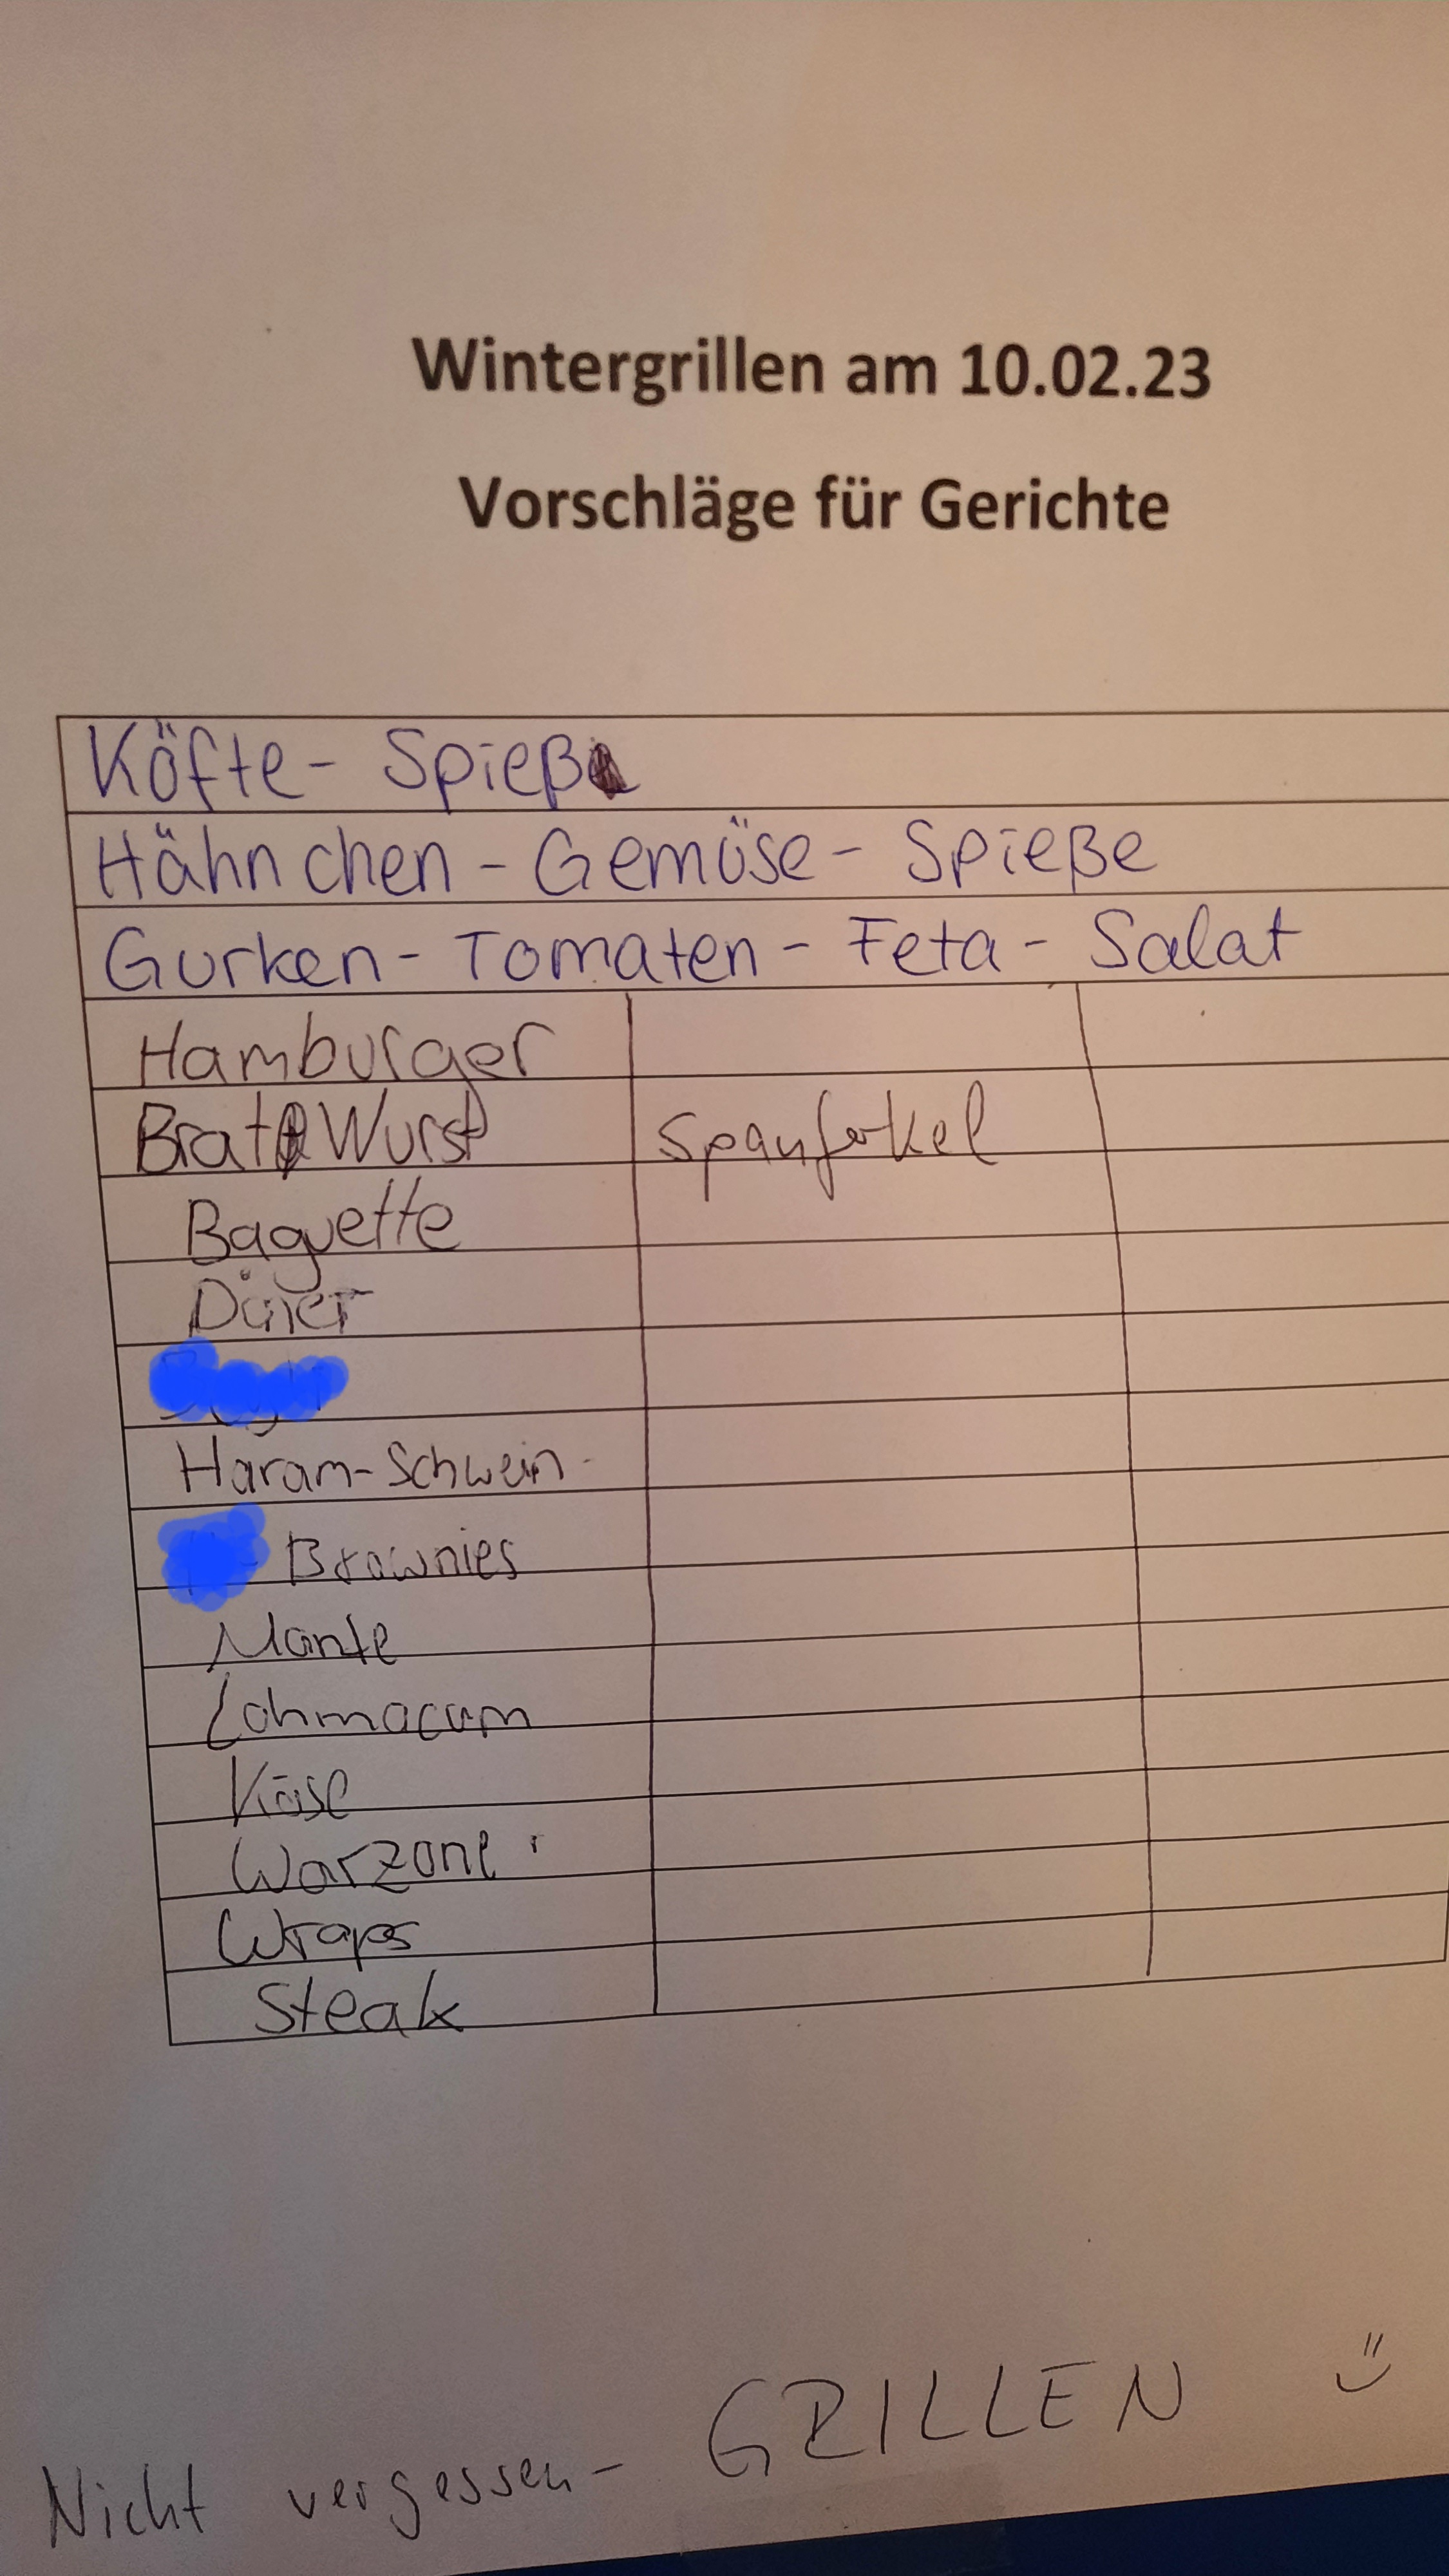 Wintergrillen am 10.02.23
Vorschläge für Gerichte
Köfte- Spieß
Hähnchen - Gemüse - Spieße
Gurken - Tomaten - Feta - Salat
Hamburger
Brat Wurst Spanferkel
Baguette
Döner
Haram-Schwein
Brownies
Mante
Lohmacum
Käse
Warzone
Wraps
Steak
Nicht vergessen - GRILLEN